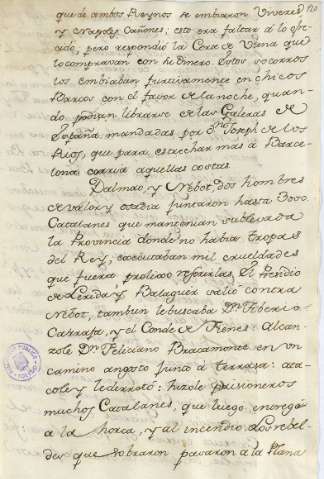 que de ambos Reynos se embiaron Viveres
y Naypes Cañones, esto era faltar á lo ofre-
cido, pero respondió la Corte de Viena que
lo compravan con su dinero. Estos socorros
los embiaban furtivamente en chicos
Barcos con el favor de la noche, quan-
do podian librarse de las Galeras de
España, mandadas por Dn. Joseph de los
Rios, que para estrechar más á Barce-
lona corria aquellas costas.
Dalmao, y Nebot, dos hombres
de valor, y osadia juntaron hasta 3000
Catalanes que mantenian sublevada
la Provincia donde no habia tropas
del Rey, executaban mil crueldades
que fuera prolixo referirlas. El presidio
de Lerida y Balaguer salió contra
Nebot, tambien le buscaba Dn. Tiberio
Carrafa, y el Conde de Fienes: Alcan-
zole Dn. Feliciano Bracamonte en un
camino angosto junto á terrasa: ata-
cole y le derrotó: hizole prisioneros
muchos Catalanes, que luego entregó
á la horca, y al incendio. Los rebel-
des que sobraron pasaron á la Plana